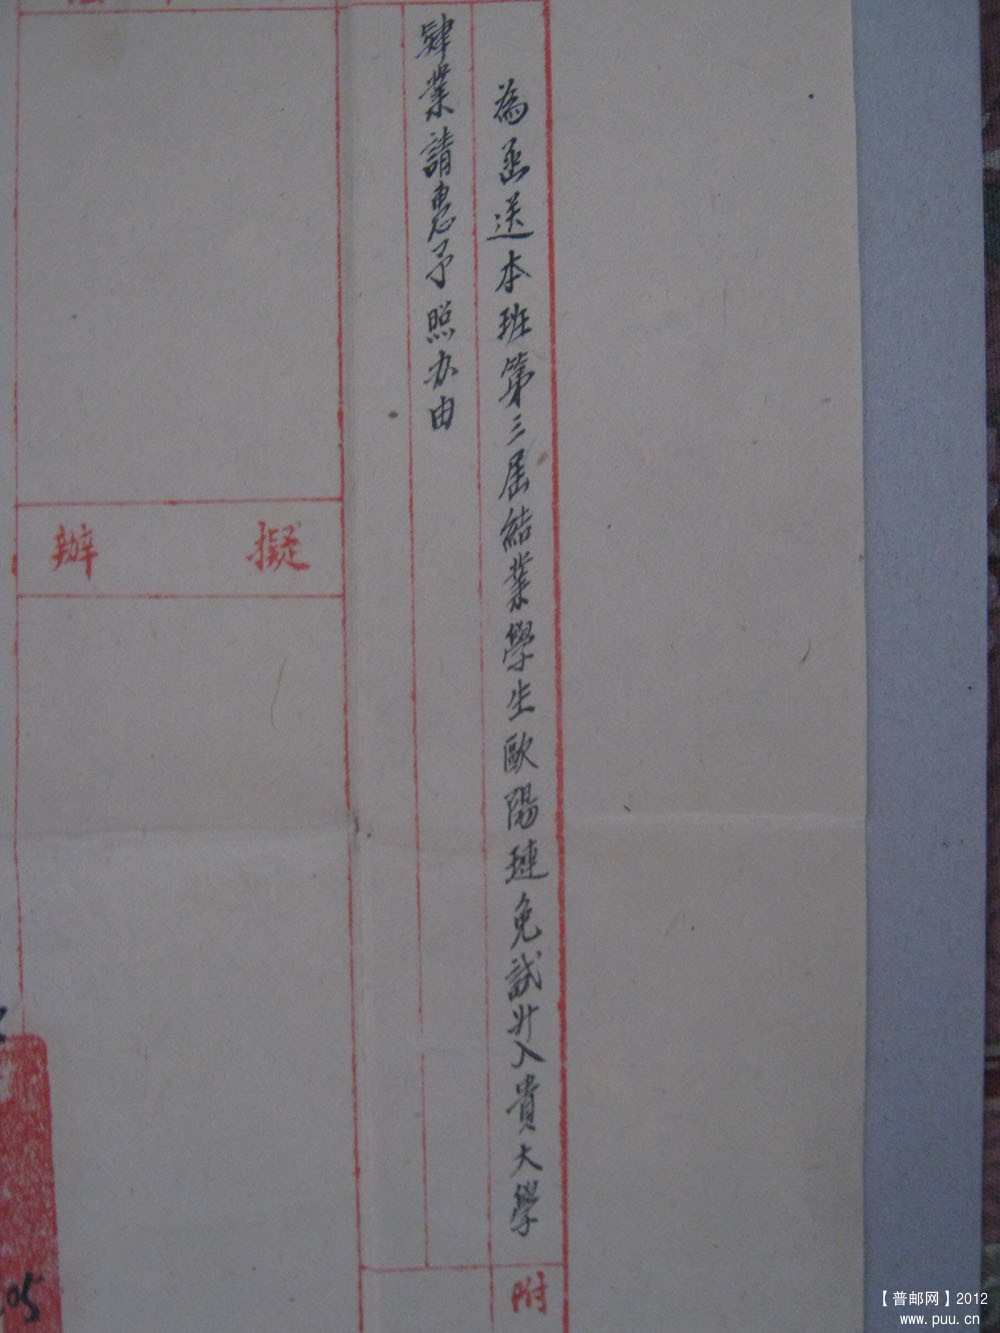 為函送本班第三屆結業學生歐陽璉免試升入貴大學
肄業請惠予照办由
附
擬辦
05
【普邮网】2012
www.puu.cn